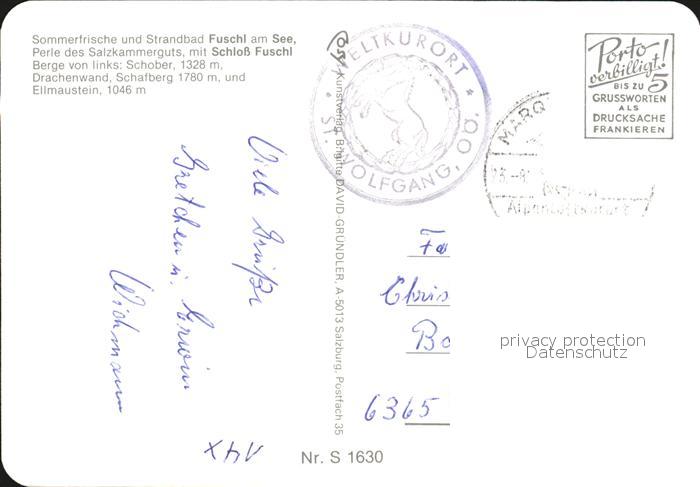 Sommerfrische und Strandbad Fuschl am See,
Perle des Salzkammerguts, mit Schloß Fuschl
Berge von links: Schober, 1328 m,
Drachenwand, Schafberg 1780 m, und
Ellmaustein, 1046 m
WELTKURORT
ST. WOLFGANG, OÖ.
Porto
verbilligt!
BIS ZU 5
GRUSSWORTEN
ALS
DRUCKSACHE
FRANKIEREN
Kunstverlag Brigitte DAVID-GRÜNDLER, A-5013 Salzburg, Postfach 35
Viele Grüße
Gretchen u. Erwin
Wichmann
Chris
Bo
6365
privacy protection
Datenschutz
Nr. S 1630